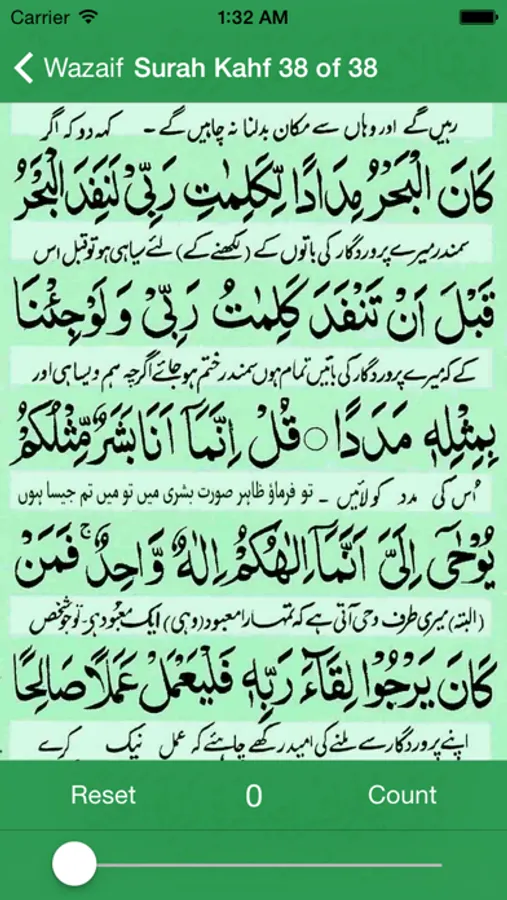 Carrier 1:32 AM
Wazaif Surah Kahf 38 of 38
رہیں گے اور وہاں سے مکان بدلنا نہ چاہیں گے - کہہ دو کہ اگر
كَانَ الْبَحْرُ مِدَادًا لِّكَلِمٰتِ رَبِّيْ لَنَفِدَ الْبَحْرُ
سمندر میرے پروردگار کی باتوں کے (لکھنے کے) لئے سیاہی ہو تو قبل اس
قَبْلَ اَنْ تَنْفَدَ كَلِمٰتُ رَبِّيْ وَلَوْ جِئْنَا
کے کہ میرے پروردگار کی باتیں تمام ہوں سمندر ختم ہو جائے اگرچہ ہم ویسا ہی اور
بِمِثْلِهٖ مَدَدًا ○ قُلْ اِنَّمَآ اَنَا بَشَرٌ مِّثْلُكُمْ
اُس کی مدد کو لائیں - تو فرماؤ ظاہر صورت بشری میں تو میں تم جیسا ہوں
يُوْحٰٓى اِلَيَّ اَنَّمَآ اِلٰهُكُمْ اِلٰهٌ وَّاحِدٌ ۚ فَمَنْ
(البتہ) میری طرف وحی آتی ہے کہ تمہارا معبود (وہی) ایک معبود ہے - تو جو شخص
كَانَ يَرْجُوْا لِقَآءَ رَبِّهٖ فَلْيَعْمَلْ عَمَلًا صَالِحًا
اپنے پروردگار سے ملنے کی امید رکھے چاہئے کہ عمل نیک کرے
Reset 0 Count